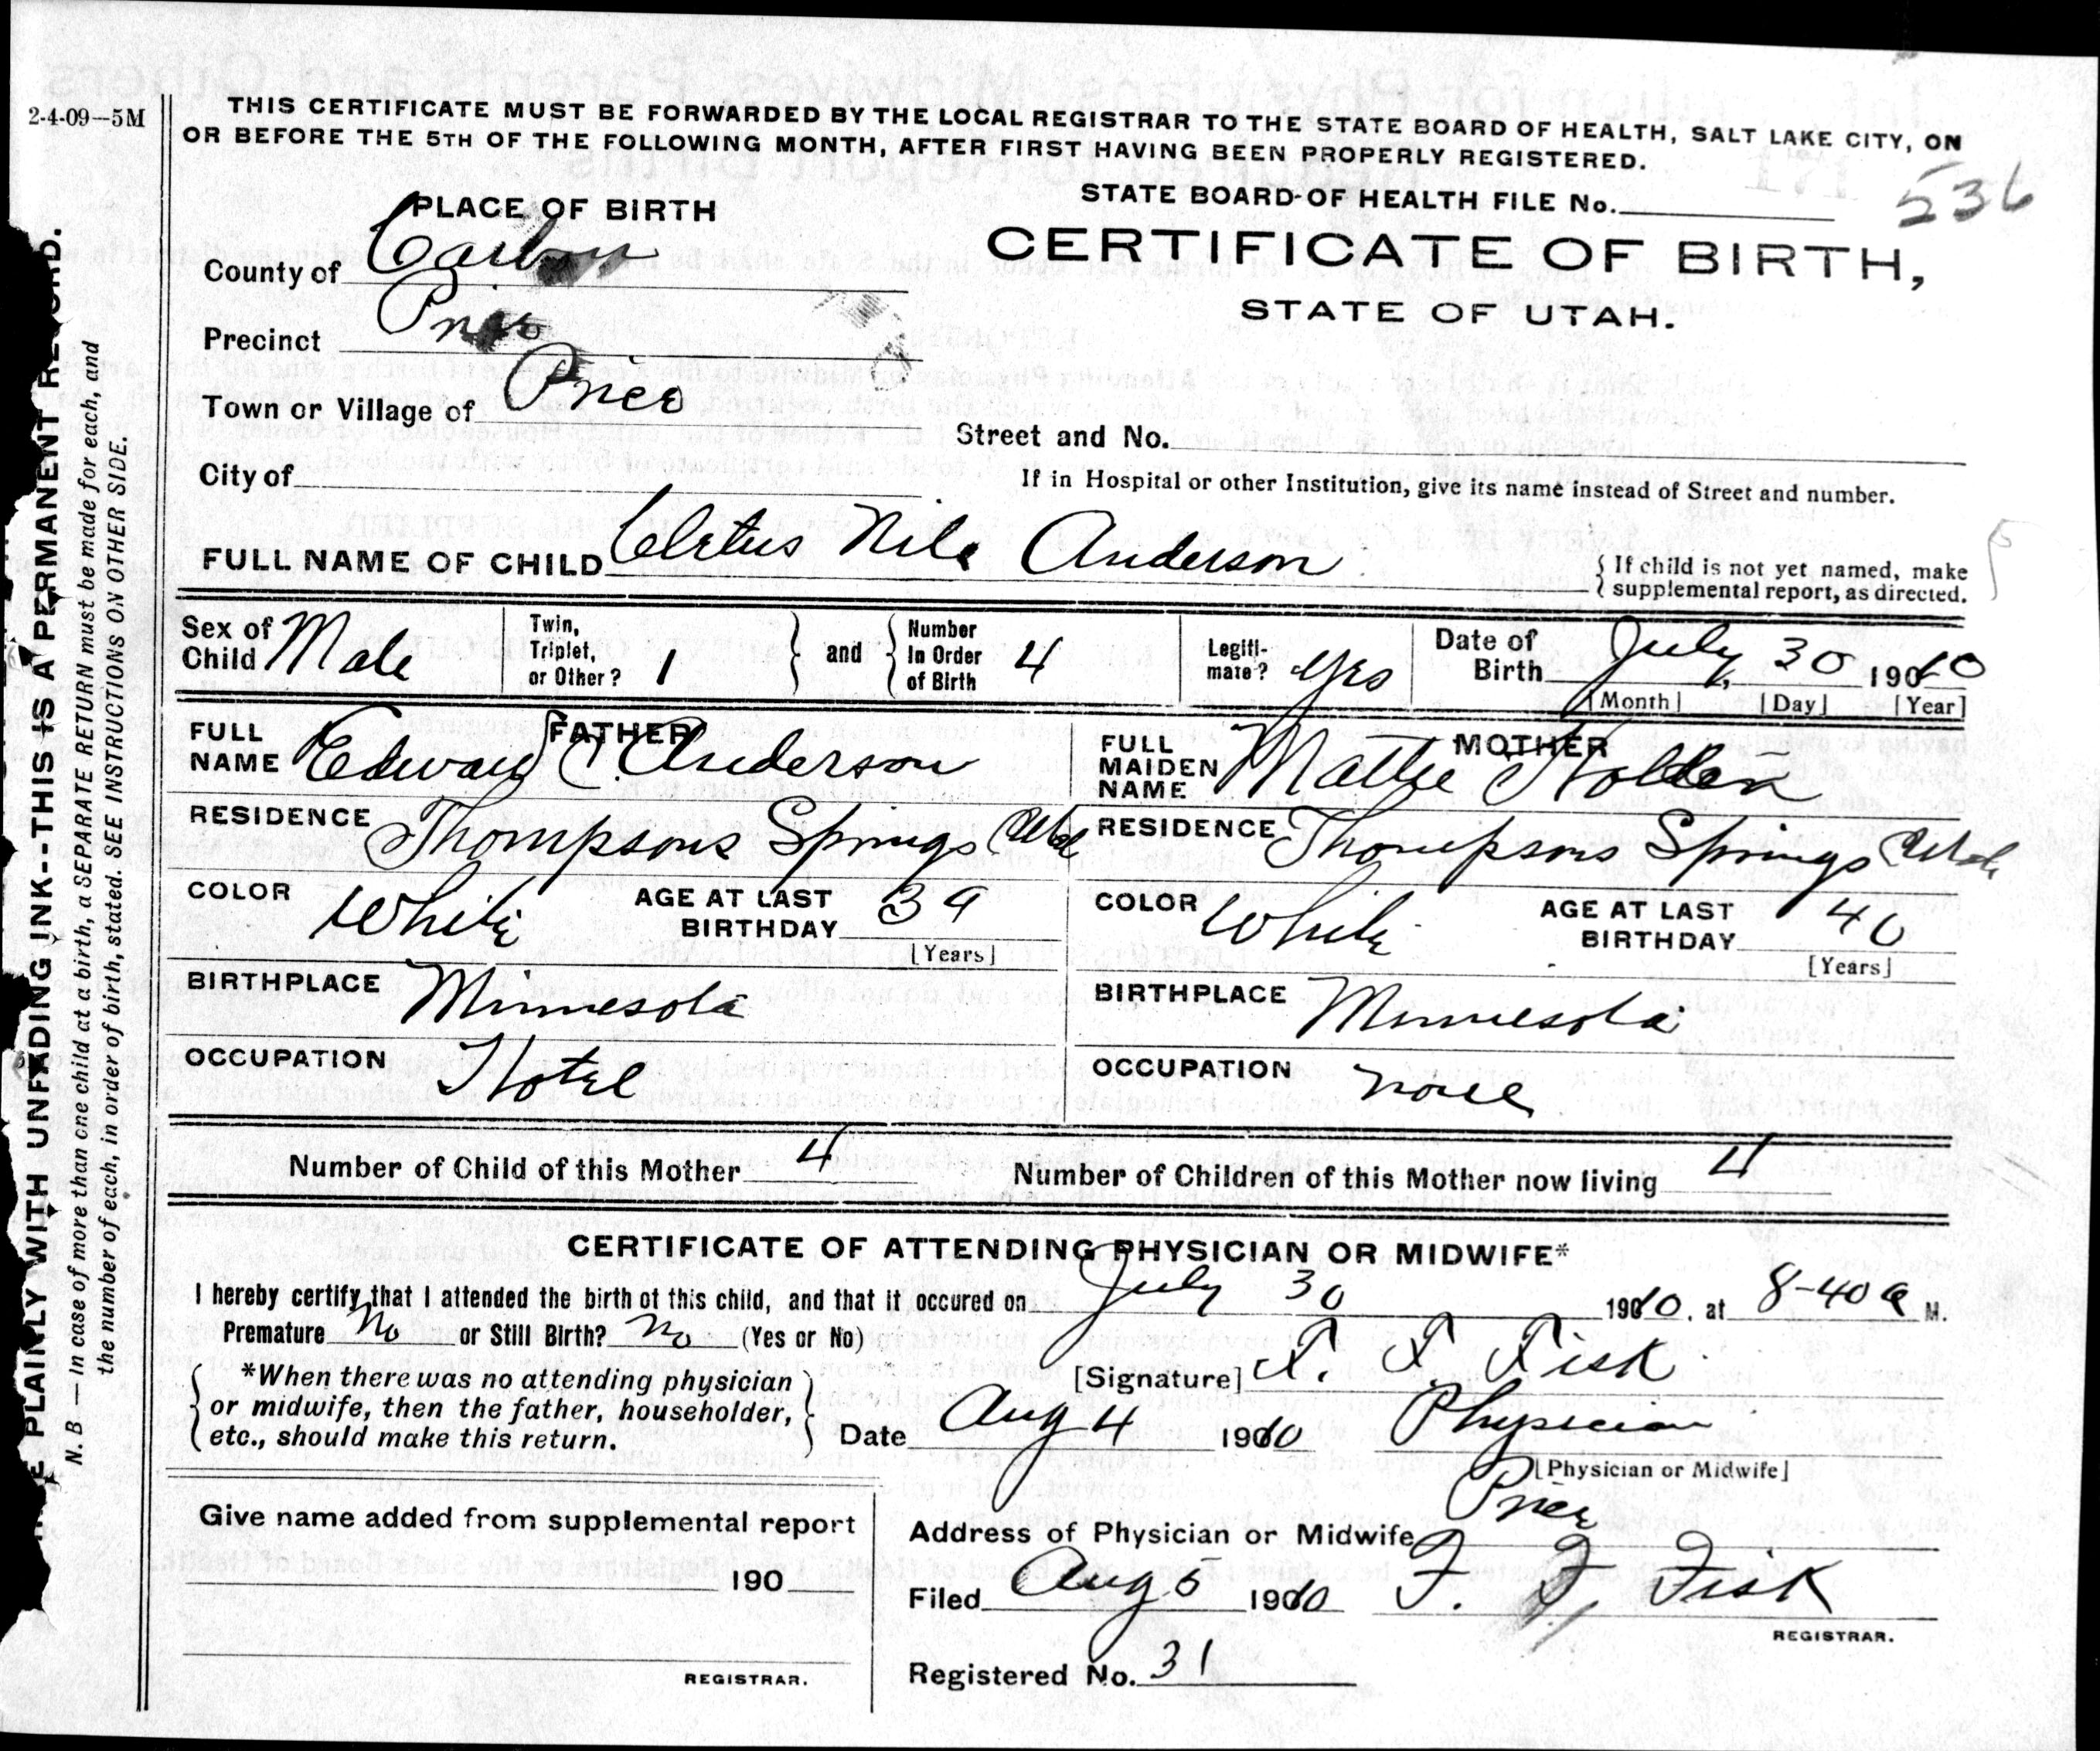 2-4-09—5M
THIS CERTIFICATE MUST BE FORWARDED BY THE LOCAL REGISTRAR TO THE STATE BOARD OF HEALTH, SALT LAKE CITY, ON
OR BEFORE THE 5TH OF THE FOLLOWING MONTH, AFTER FIRST HAVING BEEN PROPERLY REGISTERED.
STATE BOARD OF HEALTH FILE No. 536
PLACE OF BIRTH
CERTIFICATE OF BIRTH,
STATE OF UTAH.
County of Carbon
Precinct Price
Town or Village of Price
Street and No.
City of
If in Hospital or other Institution, give its name instead of Street and number.
FULL NAME OF CHILD Cletus Nile Anderson
{ If child is not yet named, make
supplemental report, as directed.
Sex of Child Male
Twin, Triplet, or Other? 1
and
Number In Order of Birth 4
Legiti-mate? Yes
Date of Birth July, 30 1910
[Month] [Day] [Year]
FATHER
FULL NAME Edward C. Anderson
MOTHER
FULL MAIDEN NAME Mattie Holden
RESIDENCE Thompsons Springs Utah
RESIDENCE Thompsons Springs Utah
COLOR White AGE AT LAST BIRTHDAY 39
[Years]
COLOR White AGE AT LAST BIRTHDAY 40
[Years]
BIRTHPLACE Minnesota
BIRTHPLACE Minnesota
OCCUPATION Hotel
OCCUPATION none
Number of Child of this Mother 4 Number of Children of this Mother now living 4
CERTIFICATE OF ATTENDING PHYSICIAN OR MIDWIFE*
I hereby certify that I attended the birth of this child, and that it occured on July 30 1910, at 8-40 a M.
Premature No or Still Birth? No (Yes or No)
[Signature] F. F. Fisk
*When there was no attending physician
or midwife, then the father, householder,
etc., should make this return.
Date Aug 4 1910 Physician
[Physician or Midwife]
Give name added from supplemental report
190
REGISTRAR.
Address of Physician or Midwife Price
Filed Aug 5 1910 F. F. Fisk
REGISTRAR.
Registered No. 31
PLAINLY WITH UNFADING INK--THIS IS A PERMANENT RECORD.
N. B.—In case of more than one child at a birth, a SEPARATE RETURN must be made for each, and
the number of each, in order of birth, stated. SEE INSTRUCTIONS ON OTHER SIDE.